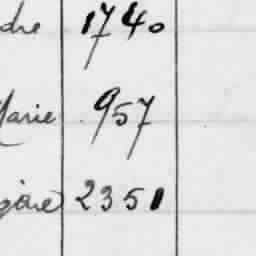 dre 1740
Marie 957
2351